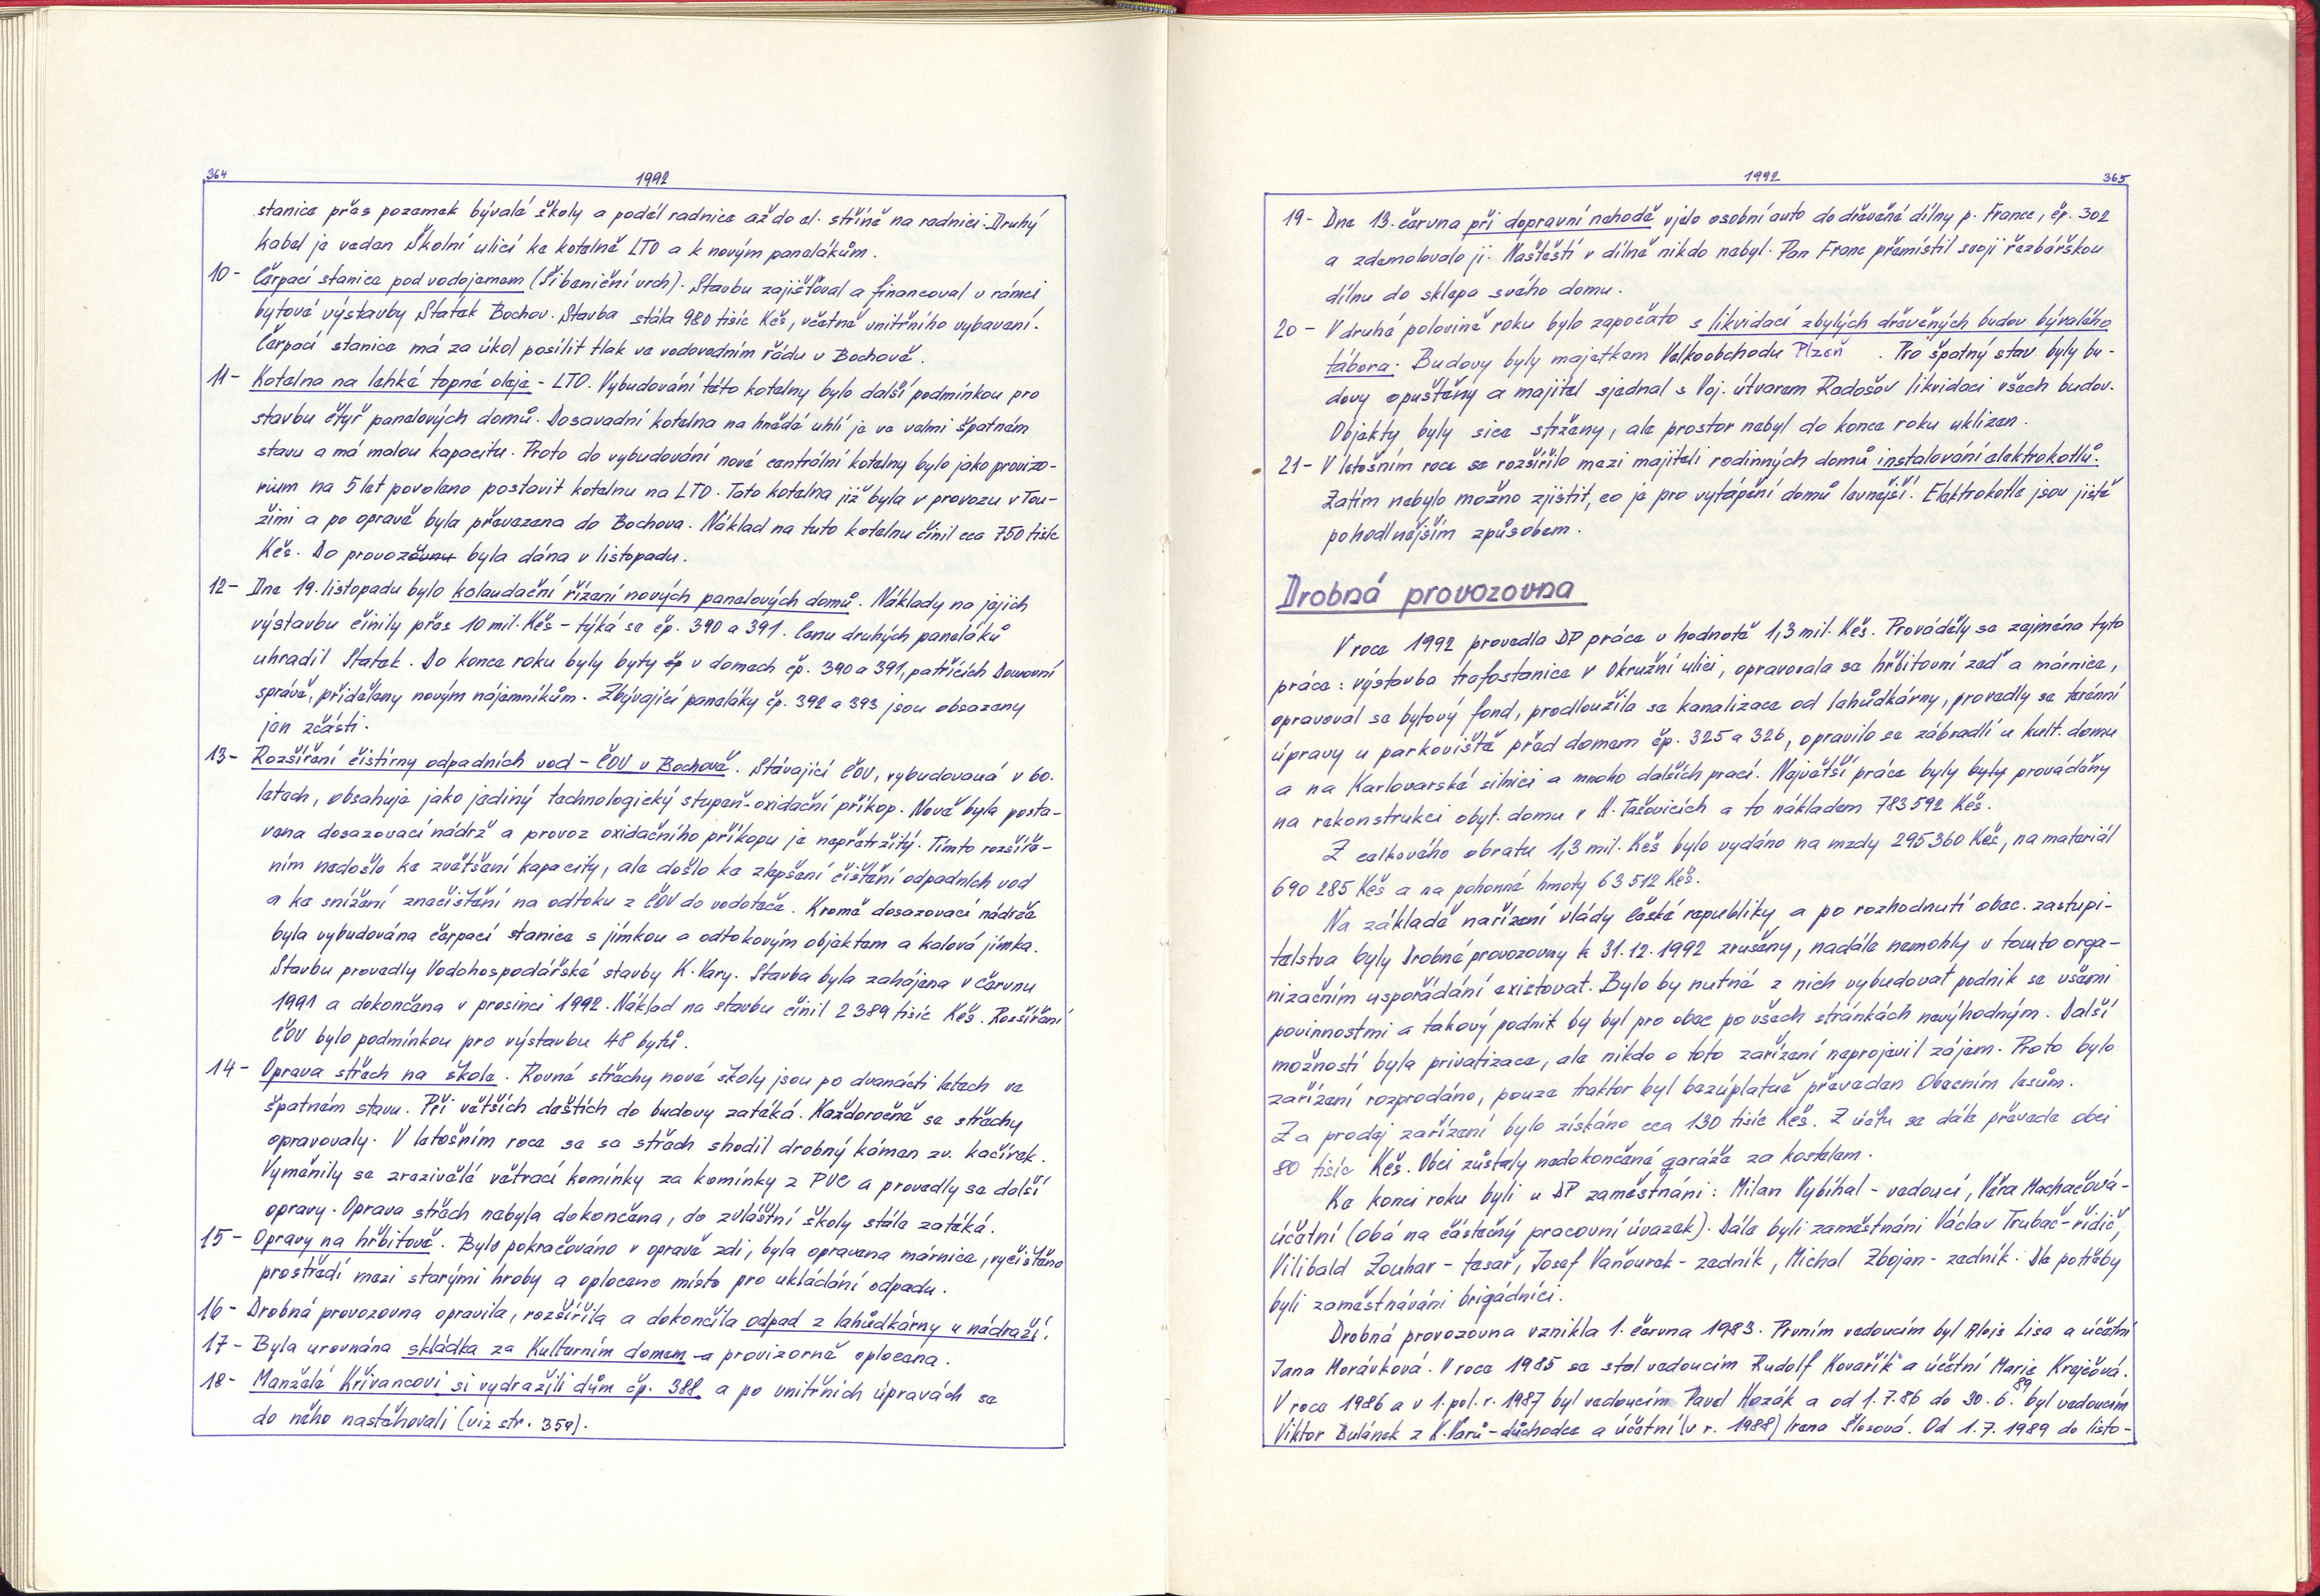 364
1992
stanice přes pozemek bývalé školy a podél radnice až do el. stříně na radnici. Druhý
kabel je veden Školní ulicí ke kotelně LTO a k novým panelákům.
10 - Čerpací stanice pod vodojemem (Šibeniční vrch). Stavbu zajišťoval a financoval v rámci
bytové výstavby Statek Bochov. Stavba stála 980 tisíc Kčs, včetně vnitřního vybavení.
Čerpací stanice má za úkol posílit tlak ve vodovodním řádu v Bochově.
11 - Kotelna na lehké topné oleje - LTO. Vybudování této kotelny bylo další podmínkou pro
stavbu čtyř panelových domů. Dosavadní kotelna na hnědé uhlí je ve velmi špatném
stavu a má malou kapacitu. Proto do vybudování nové centrální kotelny bylo jako provizo-
rium na 5 let povoleno postavit kotelnu na LTO. Tato kotelna již byla v provozu v Tou-
žimi a po opravě byla převezena do Bochova. Náklad na tuto kotelnu činil cca 750 tisíc
Kčs. Do provozu byla dána v listopadu.
12 - Dne 19. listopadu bylo kolaudační řízení nových panelových domů. Náklady na jejich
výstavbu činily přes 10 mil. Kčs - týká se čp. 390 a 391. Cenu druhých paneláků
uhradil Statek. Do konce roku byly byty čp v domech čp. 390 a 391, patřících Domovní
správě, přiděleny novým nájemníkům. Zbývající paneláky čp. 392 a 393 jsou obsazeny
jen zčásti.
13 - Rozšíření čistírny odpadních vod - ČOV v Bochově. Stávající ČOV, vybudovaná v 60.
letech, obsahuje jako jediný technologický stupeň - oxidační příkop. Nově byla posta-
vena dosazovací nádrž a provoz oxidačního příkopu je nepřetržitý. Tímto rozšíře-
ním nedošlo ke zvětšení kapacity, ale došlo ke zlepšení čištění odpadních vod
a ke snížení znečištění na odtoku z ČOV do vodoteče. Kromě dosazovací nádrže
byla vybudována čerpací stanice s jímkou a odtokovým objektem a kalová jímka.
Stavbu provedly Vodohospodářské stavby K. Vary. Stavba byla zahájena v červnu
1991 a dokončena v prosinci 1992. Náklad na stavbu činil 2 389 tisíc Kčs. Rozšíření
ČOV bylo podmínkou pro výstavbu 48 bytů.
14 - Oprava střech na škole. Rovné střechy nové školy jsou po dvanácti letech ve
špatném stavu. Při větších deštích do budovy zatéká. Každoročně se střechy
opravovaly. V letošním roce se se střech shodil drobný kámen zv. kačírek.
Vyměnily se zrezivělé větrací komínky za komínky z PVC a provedly se další
opravy. Oprava střech nebyla dokončena, do zvláštní školy stále zatéká.
15 - Opravy na hřbitově. Bylo pokračováno v opravě zdi, byla opravena márnice, vyčištěno
prostředí mezi starými hroby a oploceno místo pro ukládání odpadu.
16 - Drobná provozovna opravila, rozšířila a dokončila odpad z lahůdkárny u nádraží.
17 - Byla urovnána skládka za Kulturním domem a provizorně oplocena.
18 - Manželé Křivancovi si vydražili dům čp. 388 a po vnitřních úpravách se
do něho nastěhovali (viz str. 359).
1992
365
19 - Dne 13. června při dopravní nehodě vjelo osobní auto do dřevěné dílny p. France, čp. 302
a zdemolovalo ji. Naštěstí v dílně nikdo nebyl. Pan Franc přemístil svoji řezbářskou
dílnu do sklepa svého domu.
20 - V druhé polovině roku bylo započato s likvidací zbylých dřevěných budov bývalého
tábora. Budovy byly majetkem Velkoobchodu Plzeň. Pro špatný stav byly bu-
dovy opuštěny a majitel sjednal s Voj. útvarem Radošov likvidaci všech budov.
Objekty byly sice strženy, ale prostor nebyl do konce roku uklizen.
21 - V letošním roce se rozšířilo mezi majiteli rodinných domů instalování elektrokotlů.
Zatím nebylo možno zjistit, co je pro vytápění domů levnější. Elektrokotle jsou jistě
pohodlnějším způsobem.
Drobná provozovna
V roce 1992 provedla DP práce v hodnotě 1,3 mil. Kčs. Prováděly se zejména tyto
práce: výstavba trafostanice v Okružní ulici, opravovala se hřbitovní zeď a márnice,
opravoval se bytový fond, prodloužila se kanalizace od lahůdkárny, provedly se terénní
úpravy u parkoviště před domem čp. 325 a 326, opravilo se zábradlí u kult. domu
a na Karlovarské silnici a mnoho dalších prací. Největší práce byly byly prováděny
na rekonstrukci obyt. domu v H. Tašovicích a to nákladem 783 592 Kčs.
Z celkového obratu 1,3 mil. Kčs bylo vydáno na mzdy 295 360 Kčs, na materiál
690 285 Kčs a na pohonné hmoty 63 512 Kčs.
Na základě nařízení vlády České republiky a po rozhodnutí obec. zastupi-
telstva byly Drobné provozovny k 31.12.1992 zrušeny, nadále nemohly v tomto orga-
nizačním uspořádání existovat. Bylo by nutné z nich vybudovat podnik se všemi
povinnostmi a takový podnik by byl pro obec po všech stránkách nevýhodným. Další
možností byla privatizace, ale nikdo o toto zařízení neprojevil zájem. Proto bylo
zařízení rozprodáno, pouze traktor byl bezúplatně převeden Obecním lesům.
Za prodej zařízení bylo získáno cca 130 tisíc Kčs. Z účtu se dále převede obci
80 tisíc Kčs. Obci zůstaly nedokončené garáže za kostelem.
Ke konci roku byli u DP zaměstnáni: Milan Vybíhal - vedoucí, Věra Machačová -
účetní (oba na částečný pracovní úvazek). Dále byli zaměstnáni Václav Trubač - řidič,
Vilibald Zouhar - tesař, Josef Vaňourek - zedník, Michal Zbojan - zedník. Dle potřeby
byli zaměstnáváni brigádníci.
Drobná provozovna vznikla 1. června 1983. Prvním vedoucím byl Alois Lisa a účetní
Jana Morávková. V roce 1985 se stal vedoucím Rudolf Kovařík a účetní Marie Krejčová.
V roce 1986 a v 1. pol. r. 1987 byl vedoucím Pavel Hozák a od 1.7.86 do 30.6.89 byl vedoucím
Viktor Bulánek z K. Varů - důchodce a účetní (v r. 1988) Irena Šlosová. Od 1.7.1989 do listo-